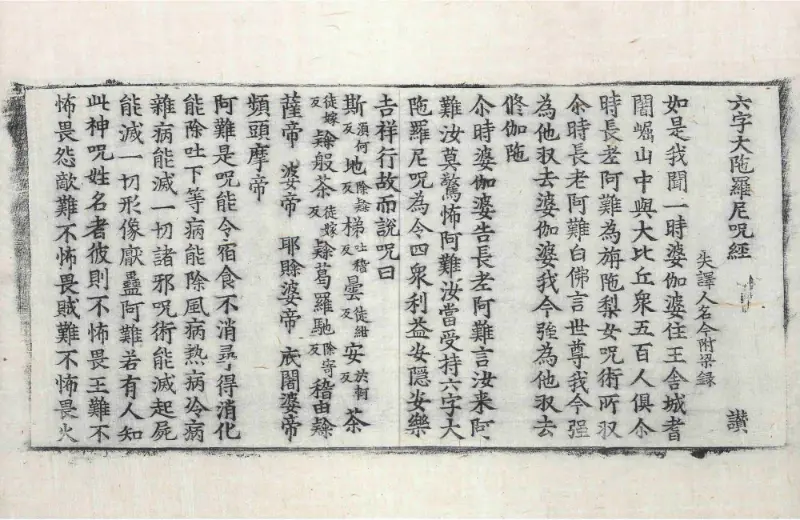 六字大陁羅尼呪經　讃
失譯人名今附梁錄
如是我聞一時婆伽婆住王舍城耆
闍崛山中與大比丘衆五百人俱尒
時長老阿難為旃陁梨女呪術所収
尒時長老阿難白佛言世尊我今强
為他収去婆伽婆我今强為他収去
脩伽陁
尒時婆伽婆告長老阿難言汝来阿
難汝莫驚怖阿難汝當受持六字大
陁羅尼呪為令四衆利益安隱安樂
吉祥行故而說呪曰
斯須何反地除賖反梯吐稽反曇徒紺反安於何反荼
徒嫁反賖般荼徒嫁反賖葛羅馳除寄反稽由賖
薩帝　婆帝　耶賖婆帝　底闍婆帝
頻頭摩帝
阿難是呪能令宿食不消尋得消化
能除吐下等病能除風病熱病冷病
雜病能滅一切諸邪呪術能滅起屍
能滅一切形像厭蠱阿難若有人知
此神呪姓名者彼則不怖畏王難不
怖畏怨敵難不怖畏賊難不怖畏火